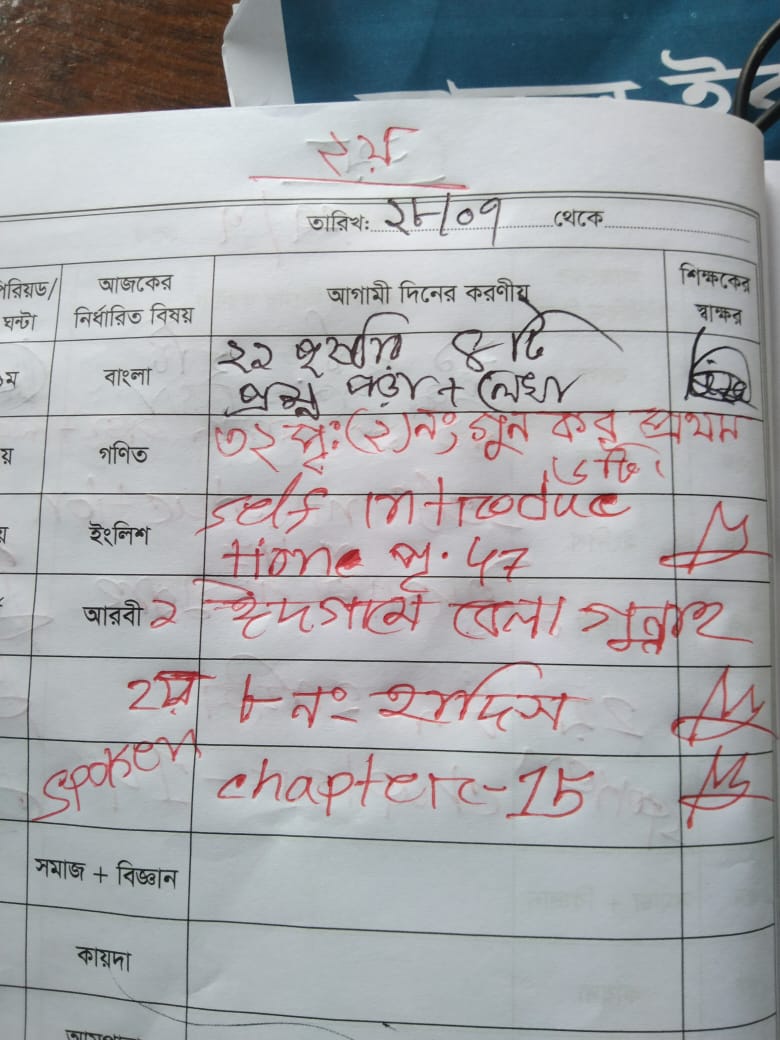 ২য়
তারিখঃ ২৮/০৭ থেকে
পিরিয়ড/ঘন্টা আজকের নির্ধারিত বিষয় আগামী দিনের করণীয় শিক্ষকের স্বাক্ষর
বাংলা ২২ পৃষ্ঠার ৪টি
প্রশ্ন পড়া + লেখা
গণিত ৩২ পৃ:(২)নং গুন কর প্রথম
৬টি।
ইংলিশ self introduce
time পৃ. 47
আরবী ২ ইদগামে বেলা গুন্নাহ
২য় ৮ নং হাদিস
spoken chapter-15
সমাজ + বিজ্ঞান
কায়দা